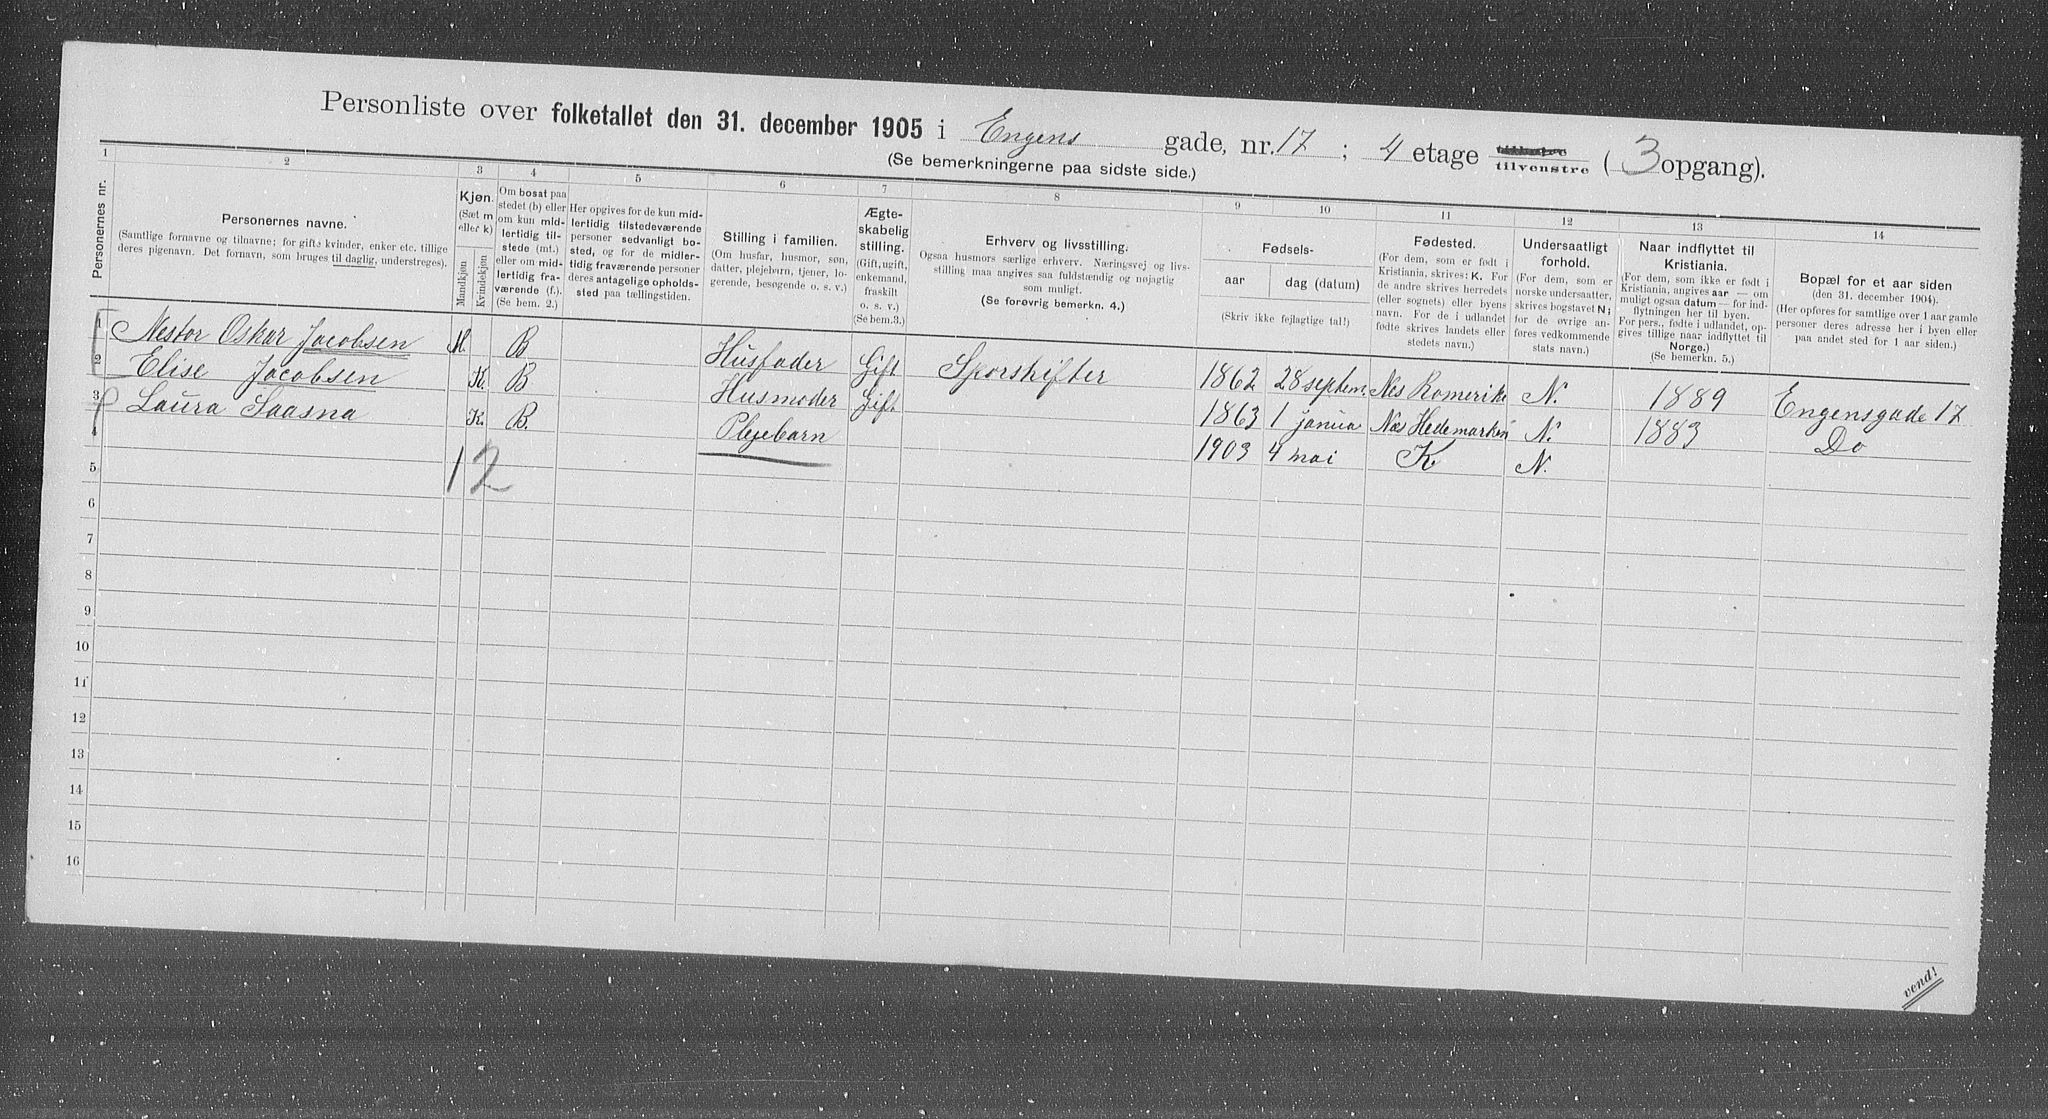 Personliste over folketallet den 31. december 1905 i Engens gade, nr. 17 ; 4 etage tilvenstre ( 3 opgang).
(Se bemerkningerne paa sidste side.)
1 2 3 4 5 6 7 8 9 10 11 12 13 14
Personernes nr.
Personernes navne.
(Samtlige fornavne og tilnavne; for gifte kvinder, enker etc. tillige
deres pigenavn. Det fornavn, som bruges til daglig, understreges).
Kjøn.
(Sæt m
eller k)
Mandkjøn
Kvindekjøn
Om bosat paa
stedet (b) eller
om kun mid-
lertidig til-
stede (mt.)
eller om mid-
lertidig fra-
værende (f.)
(Se bem. 2.)
Her opgives for de kun mid-
lertidig tilstedeværende
personer sedvanligt bo-
sted, og for de midler-
tidig fraværende personer
deres antagelige opholds-
sted paa tællingstiden.
Stilling i familien.
(Om husfar, husmor, søn,
datter, plejebarn, tjener, lo-
gerende, besøgende o. s. v.)
Ægte-
skabelig
stilling.
(Gift, ugift,
enkemand,
fraskilt
o. s. v.)
(Se bem. 3.)
Erhverv og livsstilling.
Ogsaa husmors særlige erhverv. Næringsvej og livs-
stilling maa angives saa fuldstændig og nøjagtig
som muligt.
(Se forøvrig bemerkn. 4.)
Fødsels-
aar dag (datum)
(Skriv ikke fejlagtige tal!)
Fødested.
(For dem, som er født i
Kristiania, skrives: K. For
de andre skrives herredets
(eller sognets) eller byens
navn. For de i udlandet
fødte skrives landets eller
stedets navn.)
Undersaatligt
forhold.
(For dem, som er
norske undersaatter,
skrives bogstavet N;
for de øvrige an-
føres vedkommende
stats navn.)
Naar indflyttet til
Kristiania.
(For dem, som ikke er født i
Kristiania, angives aar — om
muligt ogsaa datum — for ind-
flytningen her til byen.
For pers., fødte i udlandet, op-
gives tillige naar indflyttet til
Norge.)
(Se bemerkn. 5.)
Bopæl for et aar siden
(den 31. december 1904)
(Her opføres for samtlige over 1 aar gamle
personer deres adresse her i byen eller
paa andet sted for 1 aar siden.)
1 Nestor Oskar Jacobsen M. B Husfader Gift Sporskifter 1862 28 septem. Nes Romerike N. 1889 Engensgade 17
2 Elise Jacobsen K. B Husmoder Gift 1863 1 janua Næs Hedemarken N. 1883 Do
3 Laura Saasna K. B. Plejebarn 1903 4 mai K. N.
4
12
5
6
7
8
9
10
11
12
13
14
15
16
vend!